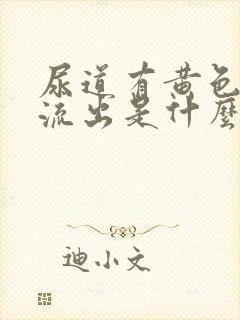 尿道有黄色
流出是什麼
迪小文